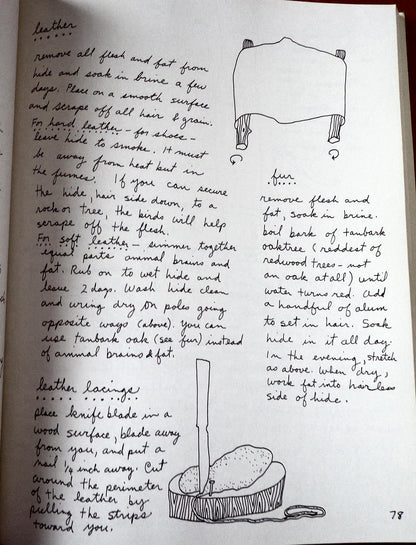 leather
remove all flesh and fat from
hide and soak in brine a few
days. Place on a smooth surface
and scrape off all hair & grain.
For hard leather - for shoes -
leave hide to smoke. It must
be away from heat but in
the fumes. If you can secure
the hide, hair side down, to a
rock or tree, the birds will help
scrape off the flesh.
For soft leather - simmer together
equal parts animal brains and
fat. Rub on to wet hide and
leave 2 days. Wash hide clean
and wring dry on poles going
opposite ways (above). You can
use tanbark oak (see fur) instead
of animal brains & fat.
leather lacings
place knife blade in a
wood surface, blade away
from you, and put a
nail 1/4 inch away. Cut
around the perimeter
of the leather by
pulling the strips
toward you.
fur
remove flesh and
fat, soak in brine.
boil bark of tanbark
oaktree (reddest of
redwood trees - not
an oak at all) until
water turns red. Add
a handful of alum
to set in hair. Soak
hide in it all day.
In the evening, stretch
as above. When dry,
work fat into hairless
side of hide.
78